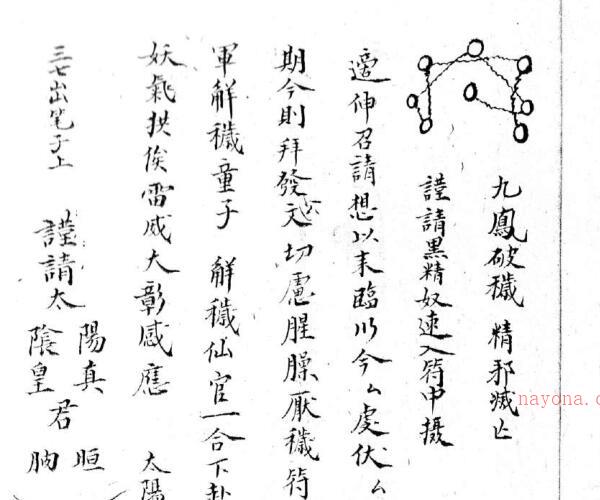 九鳳破穢 精邪滅亡
謹請黑精奴速入符中攝
遙伸召請想以來臨以今ム處伏ム
期今則拜發文切慮腥臊厭穢符
軍解穢童子 解穢仙官一合下赴
妖氣拱俟雷威大彰感應 太陽
謹請太
陽真 晅
陰皇 朒
君
三七出笔于上
nayona.c